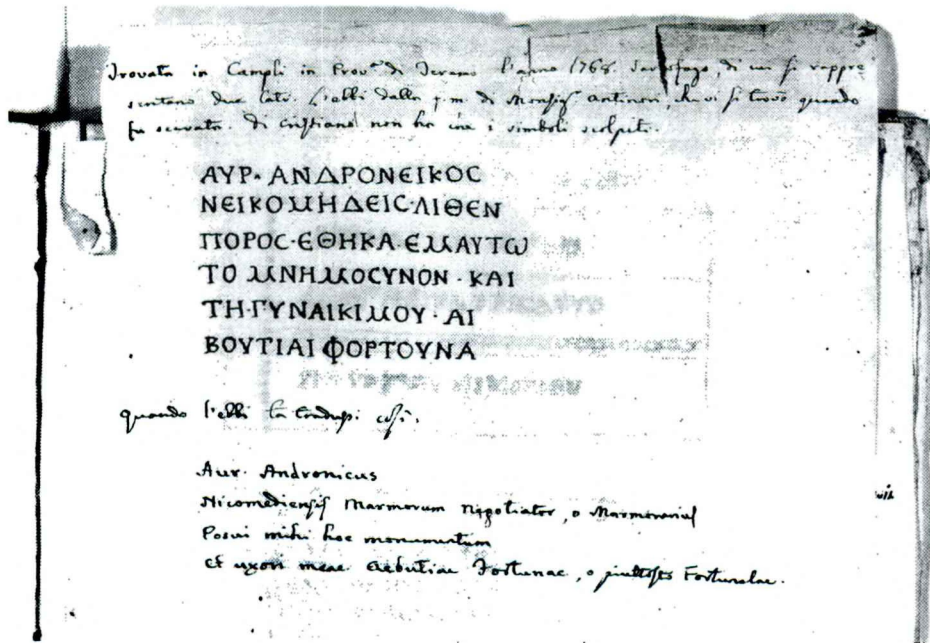 Trovata in Campli in Prov.ª di Teramo l'anno 1768. Sarcofago, di cui si rappre
sentano due lati. L'ebbi dalla f.m. di Monsig.r Antinori, che vi si trovò quando
fu scavata. Di cristiano non ha che i simboli scolpiti.
ΑΥΡ· ΑΝΔΡΟΝΕΙΚΟϹ
ΝΕΙΚΟΜΗΔΕΙϹ·ΛΙΘΕΝ
ΠΟΡΟϹ·ΕΘΗΚΑ·ΕΜΑΥΤΩ
ΤΟ ΜΝΗΜΟϹΥΝΟΝ·ΚΑΙ
ΤΗ·ΓΥΝΑΙΚΙΜΟΥ·ΑΙ
ΒΟΥΤΙΑΙ ΦΟΡΤΟΥΝΑ
quando l'ebbi la tradussi così.
Aur. Andronicus
Nicomediensis Marmorum negotiator, o Marmorarius
Posui mihi hoc monumentum
et uxori meae Aebutiae Fortunae, o piuttosto Fortunulae.